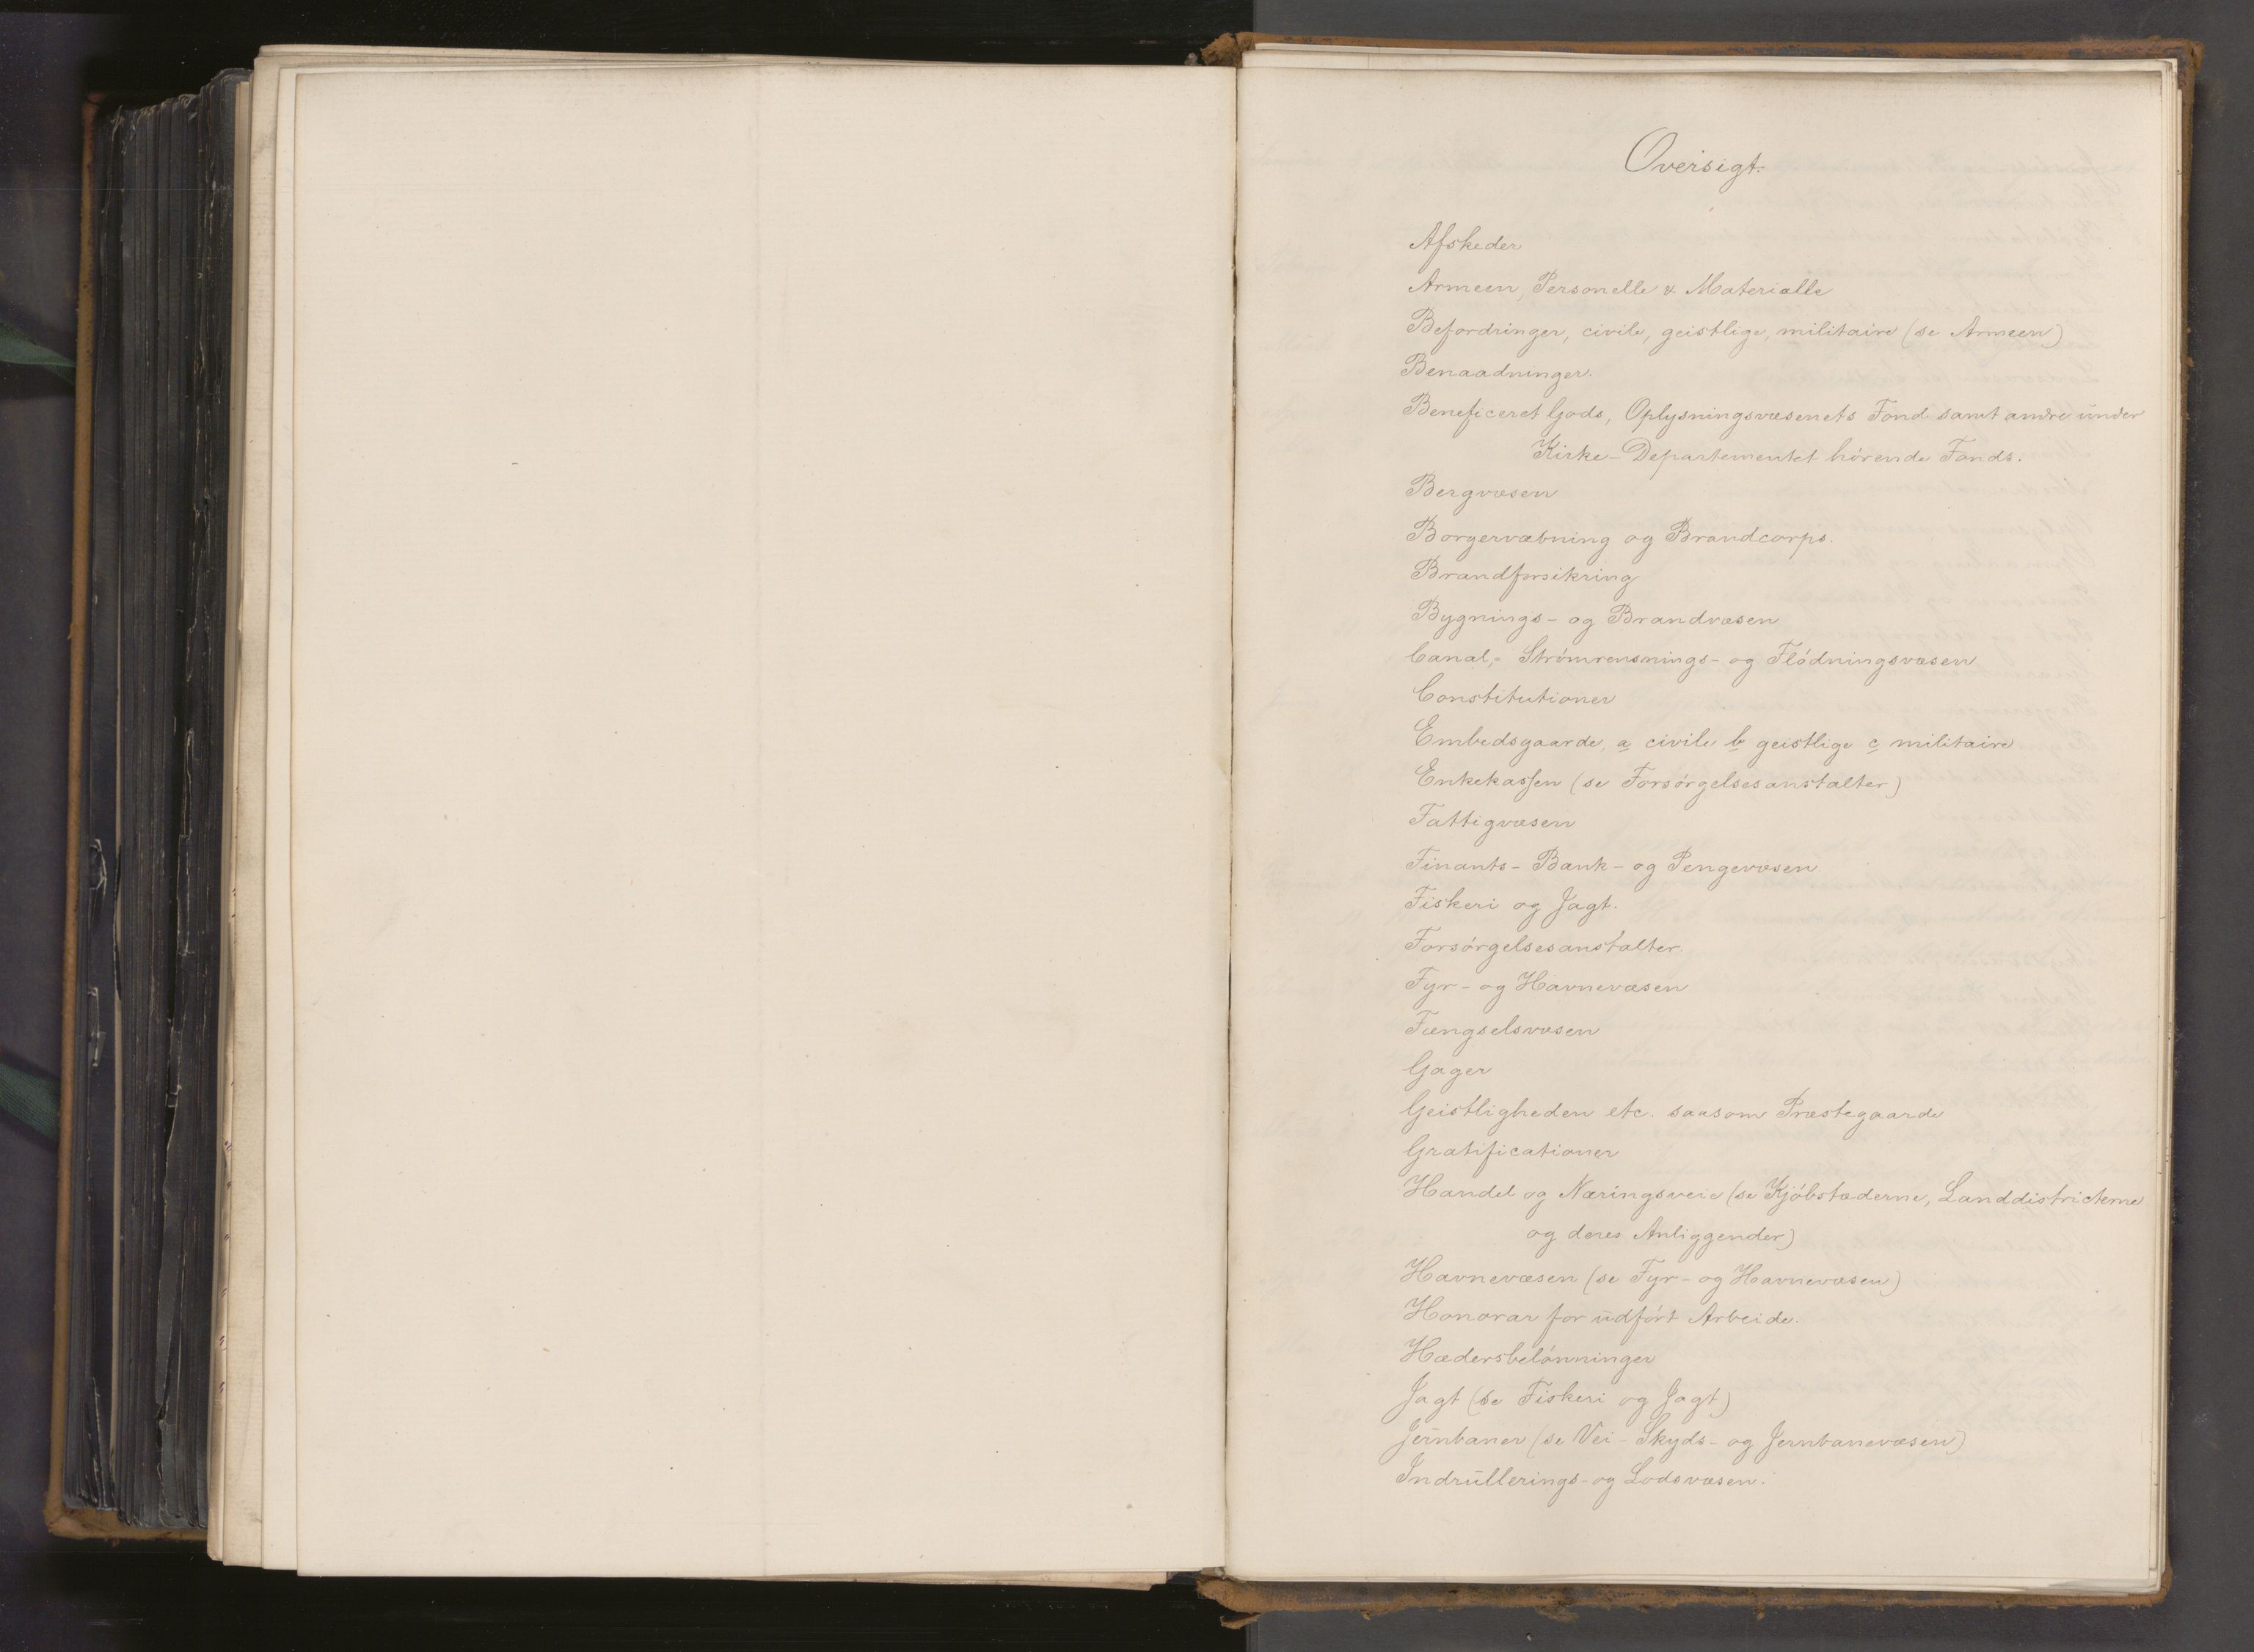 Oversigt.
Afskeder
Armeen, Personelle & Materialle
Befordringer, civile, geistlige, militaire (se Armeen)
Benaadninger.
Beneficeret Gods, Oplysningsvæsenets Fond samt andre under
Kirke-Departementet hørende Fonds.
Bergvæsen
Borgervæbning og Brandcorps.
Brandforsikring
Bygnings- og Brandvæsen
Canal,- Strømrensnings- og Flødningsvæsen
Constitutioner
Embedsgaarde, a civile b geistlige c militaire
Enkekassen (se Forsørgelsesanstalter)
Fattigvæsen
Finants- Bank- og Pengevæsen
Fiskeri og Jagt.
Forsørgelsesanstalter.
Fyr- og Havnevæsen
Fængselsvæsen
Gager
Geistligheden etc. saasom Præstegaarde
Gratificationer
Handel og Næringsveie (se Kjøbstæderne, Landdistricterne
og deres Anliggender)
Havnevæsen (se Fyr- og Havnevæsen)
Honorar for udført Arbeide.
Hædersbelønninger
Jagt (se Fiskeri og Jagt)
Jernbaner (se Vei- Skyds- og Jernbanevæsen)
Indrullerings- og Lodsvæsen.